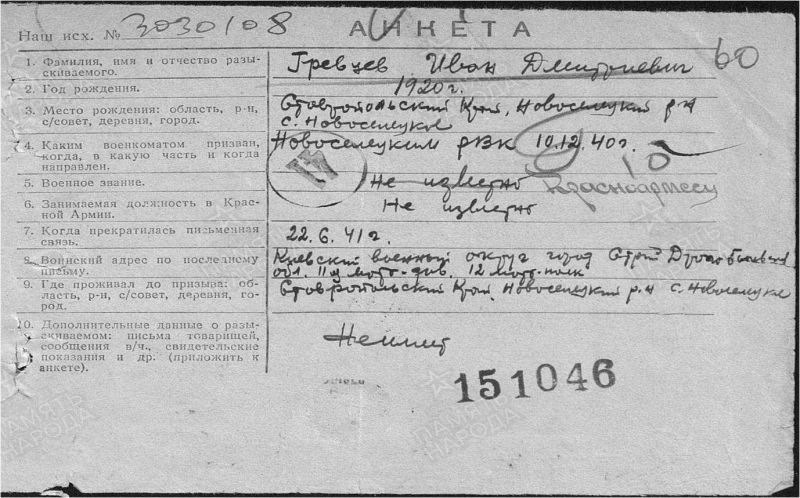 Наш исх. № 3030108 АНКЕТА
60
1. Фамилия, имя и отчество разыскиваемого. Гревцев Иван Дмитриевич
2. Год рождения. 1920г.
3. Место рождения: область, р-н, с/совет, деревня, город. Ставропольский Край, Новоселецкий р-н
с. Новоселецкое
4. Каким военкоматом призван, когда, в какую часть и когда направлен. Новоселецким РВК 10.12.40г.
10
5. Военное звание. Не известно Красноармеец
6. Занимаемая должность в Красной Армии. Не известно
7. Когда прекратилась письменная связь. 22.6.41г.
8. Воинский адрес по последнему письму. Киевский военный округ город Стрий Дрогобычская
обл. 11я мото-див. 12 мото-полк
9. Где проживал до призыва: область, р-н, с/совет, деревня, город. Ставропольский Край Новоселецкий р-н с. Новоселецкое
10. Дополнительные данные о разыскиваемом: письма товарищей, сообщения в/ч., свидетельские показания и др. (приложить к анкете).
151046
ПАМЯТЬ
НАРОДА